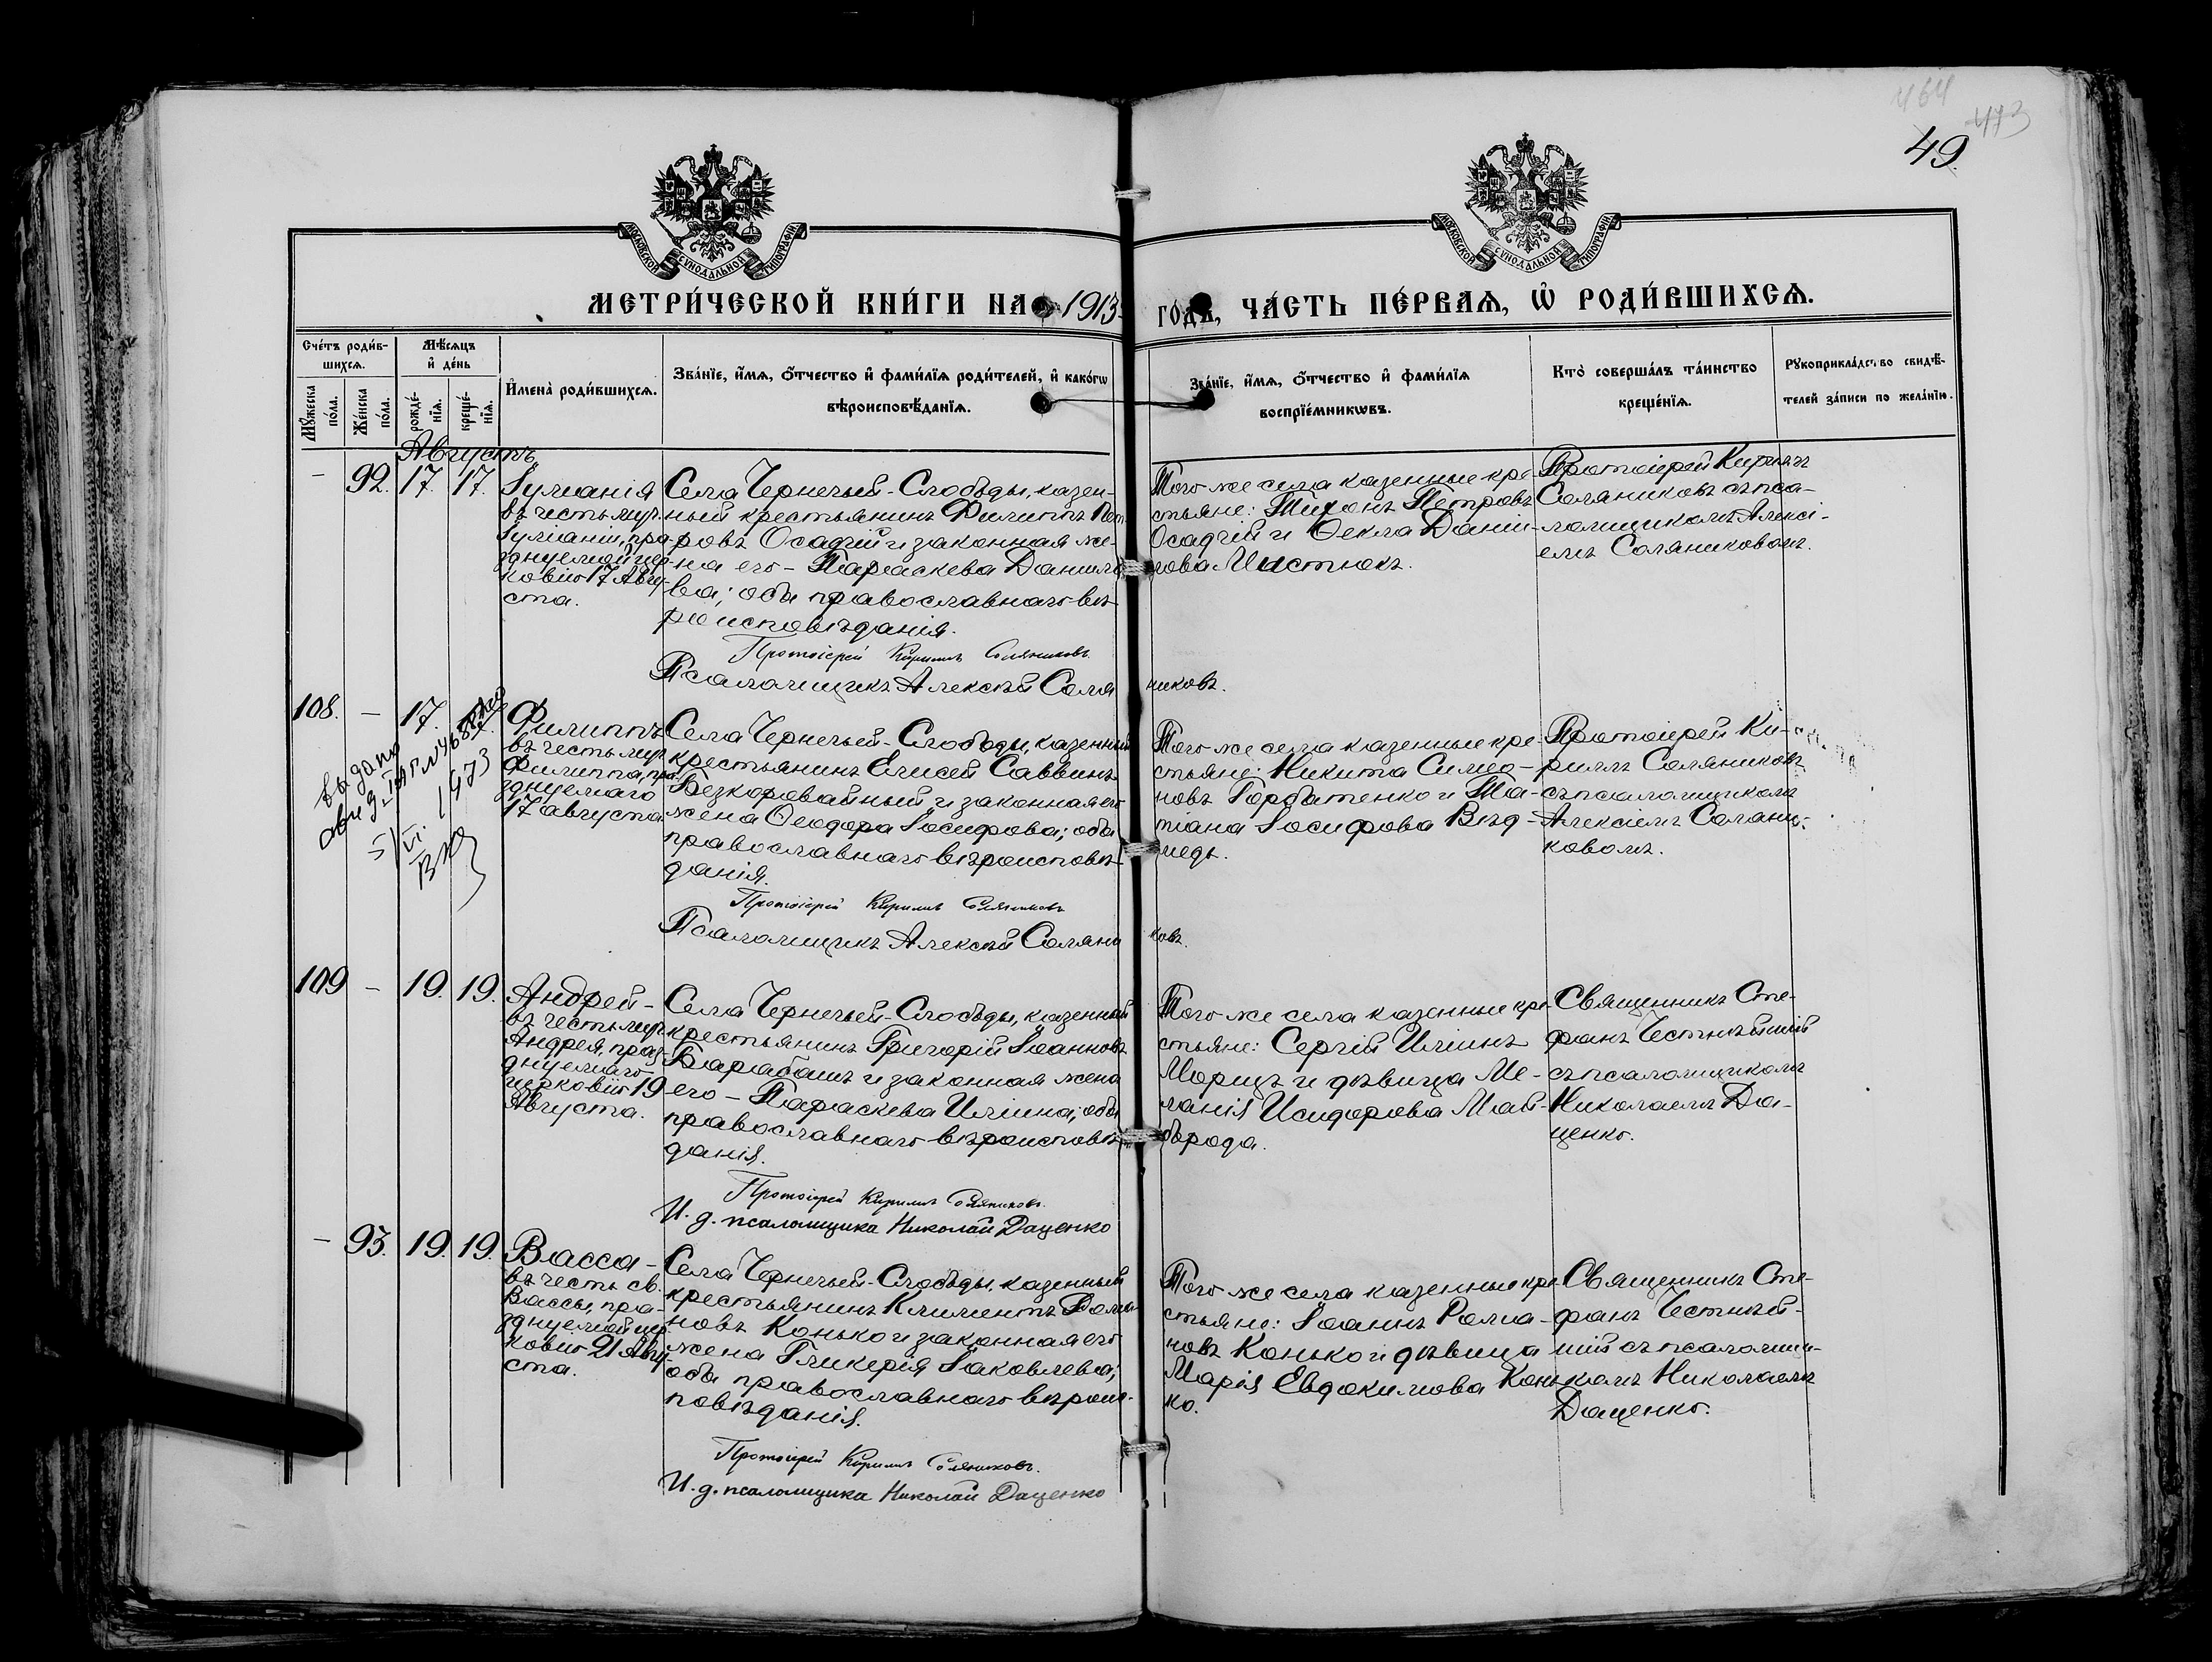 464
473
49.
МОСКОВСКОЙ СѴНОДАЛЬНОЙ ТИПОГРАФІИ
МОСКОВСКОЙ СѴНОДАЛЬНОЙ ТИПОГРАФІИ
МЕТРИ́ЧЕСКОЙ КНИ́ГИ НА 1913 ГО́ДЪ, ЧА́СТЬ ПЕ́РВАѦ, Ѡ҆ РОДИ́ВШИХСѦ.
Сче́тъ роди́в-
шихсѧ.
Мѣ́сяцъ
и҆ де́нь
Мꙋ́жеска
по́ла.
Же́нска
по́ла.
рожде́-
нїѧ.
креще́-
нїѧ.
И҆мена̀ роди́вшихсѧ.
Зва́нїе, и҆́мѧ, ѻ҆́тчество и҆ фами́лїѧ роди́телей, и҆ како́гѡ
вѣроисповѣ́данїѧ.
Зва́нїе, и҆́мѧ, ѻ҆́тчество и҆ фами́лїѧ
воспрїе́мникѡвъ.
Кто̀ соверша́лъ та́инство
креще́нїѧ.
Рꙋкоприкла́дство свидѣ́-
телей за́писи по жела́нїю.
Августъ
– 92. 17. 17.
Іуліанія
въ честь муч.
Іуліаніи, пра-
зднуемой цер-
ковію 17 Авгу-
ста.
Села Чернечьей-Слободы, казен-
ный крестьянинъ Филиппъ Пет-
ровъ Осадчій и законная же-
на его – Параскева Данило-
ва; оба православнаго вѣ-
роисповѣданія.
Протоіерей Кириллъ Соляниковъ.
Псаломщикъ Алексѣй Соляниковъ.
Того же села казенные кре-
стьяне: Тихонъ Петровъ
Осадчій и Ѳекла Дании-
лова Мистюкъ.
Протоіерей Кириллъ
Соляниковъ съ пса-
ломщикомъ Алексі-
емъ Соляниковомъ.
108. – 17.
выдано
1973
Филиппъ
въ честь муч.
Филиппа, пра-
зднуемаго
17 августа.
Села Чернечьей-Слободы, казенный
крестьянинъ Елисей Саввинъ
Безкоровайный и законная его
жена Ѳеодора Іосифова; оба
православнаго вѣроисповѣ-
данія.
Протоіерей Кириллъ Соляниковъ
Псаломщикъ Алексѣй Соляниковъ.
Того же села казенные кре-
стьяне: Никита Симео-
новъ Горбатенко и Та-
тіана Іосифова Вѣд-
медь.
Протоіерей Ки-
риллъ Соляниковъ
съ псаломщикомъ
Алексіемъ Соляни-
ковомъ.
109 – 19. 19.
Андрей –
въ честь муч.
Андрея, праз-
днуемаго
церковію 19
Августа.
Села Чернечьей-Слободы, казенный
крестьянинъ Григорій Іоанновъ
Барабашъ и законная жена
его – Параскева Иліина; оба
православнаго вѣроисповѣ-
данія.
Протоіерей Кириллъ Соляниковъ.
И. д. псаломщика Николай Даценко
Того же села казенные кре-
стьяне: Сергій Иліинъ
Морицъ и дѣвица Ме-
ланія Исидорова Май-
борода.
Священникъ Сте-
фанъ Честнѣйшій
съ псаломщикомъ
Николаемъ Да-
ценко.
– 93. 19. 19.
Васса –
въ честь св.
Вассы, пра-
зднуемой цер-
ковію 21 Авгу-
ста.
Села Чернечьей-Слободы, казенный
крестьянинъ Климентъ Рома-
новъ Конько и законная его
жена Гликерія Іаковлева;
оба православнаго вѣроис-
повѣданія.
Протоіерей Кириллъ Соляниковъ.
И. д. псаломщика Николай Даценко
Того же села казенные кре-
стьяне: Іоаннъ Рома-
новъ Конько и дѣвица
Марія Евдокимова Конь-
ко.
Священникъ Сте-
фанъ Честнѣй-
шій съ псаломщи-
комъ Николаемъ
Даценко.